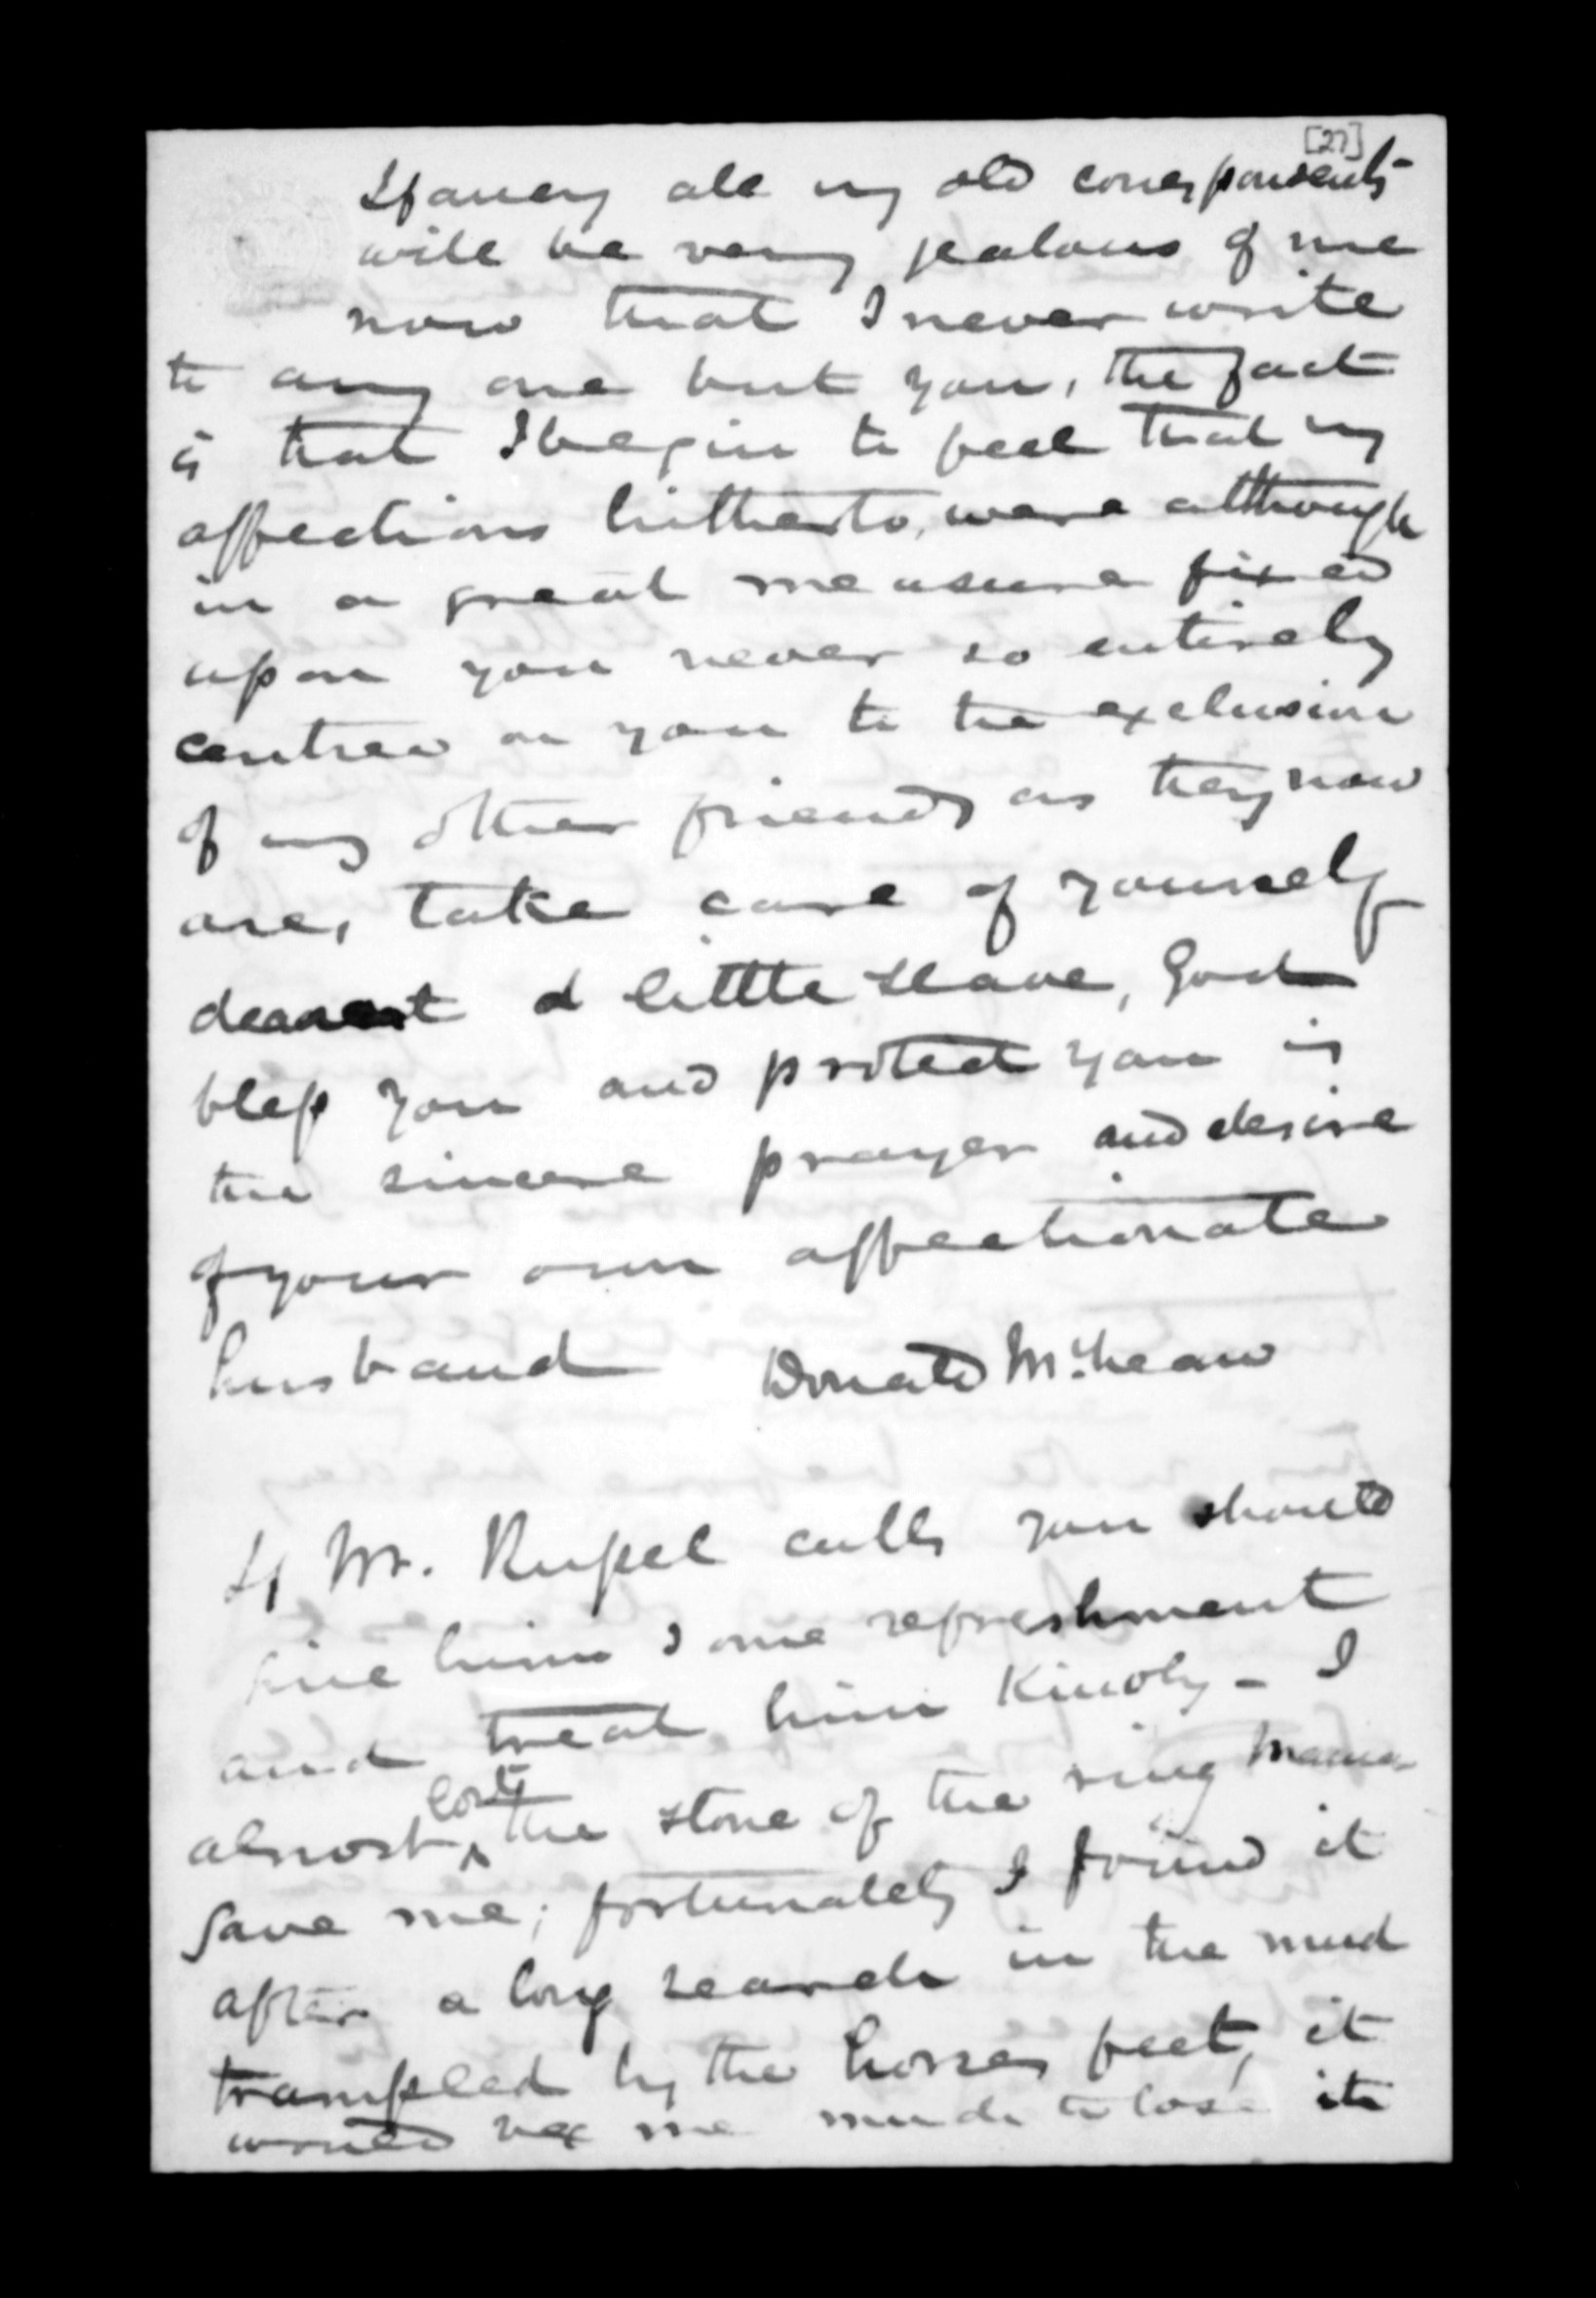 [27]
I fancy all my old correspondents
will be very jealous of me
now that I never write
to any one but you, the fact
is that I begin to feel that my
affections hitherto, were although
in a great measure fixed
upon you never so entirely
centred on you to the exclusion
of my other friends as they now
are, take care of yourself
dearest d little slave, God
bless you and protect you is
the sincere prayer and desire
of your own affectionate
husband Donald McLean
If Mr. Russel calls you should
give him some refreshment
and treat him kindly - I
almost lost the stone of the ring Mama
gave me; fortunately I found it
after a long search in the mud
trampled by the horses feet, it
would vex me much to lose it